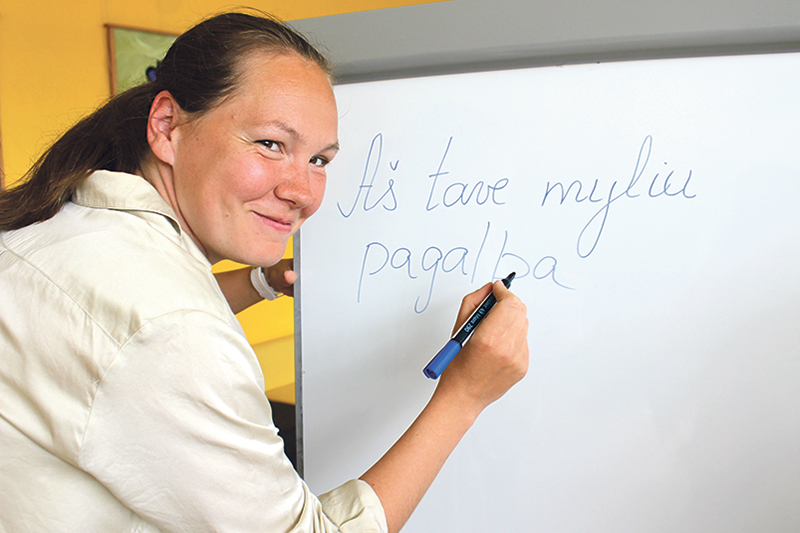 Aš tave myliu
pagalba